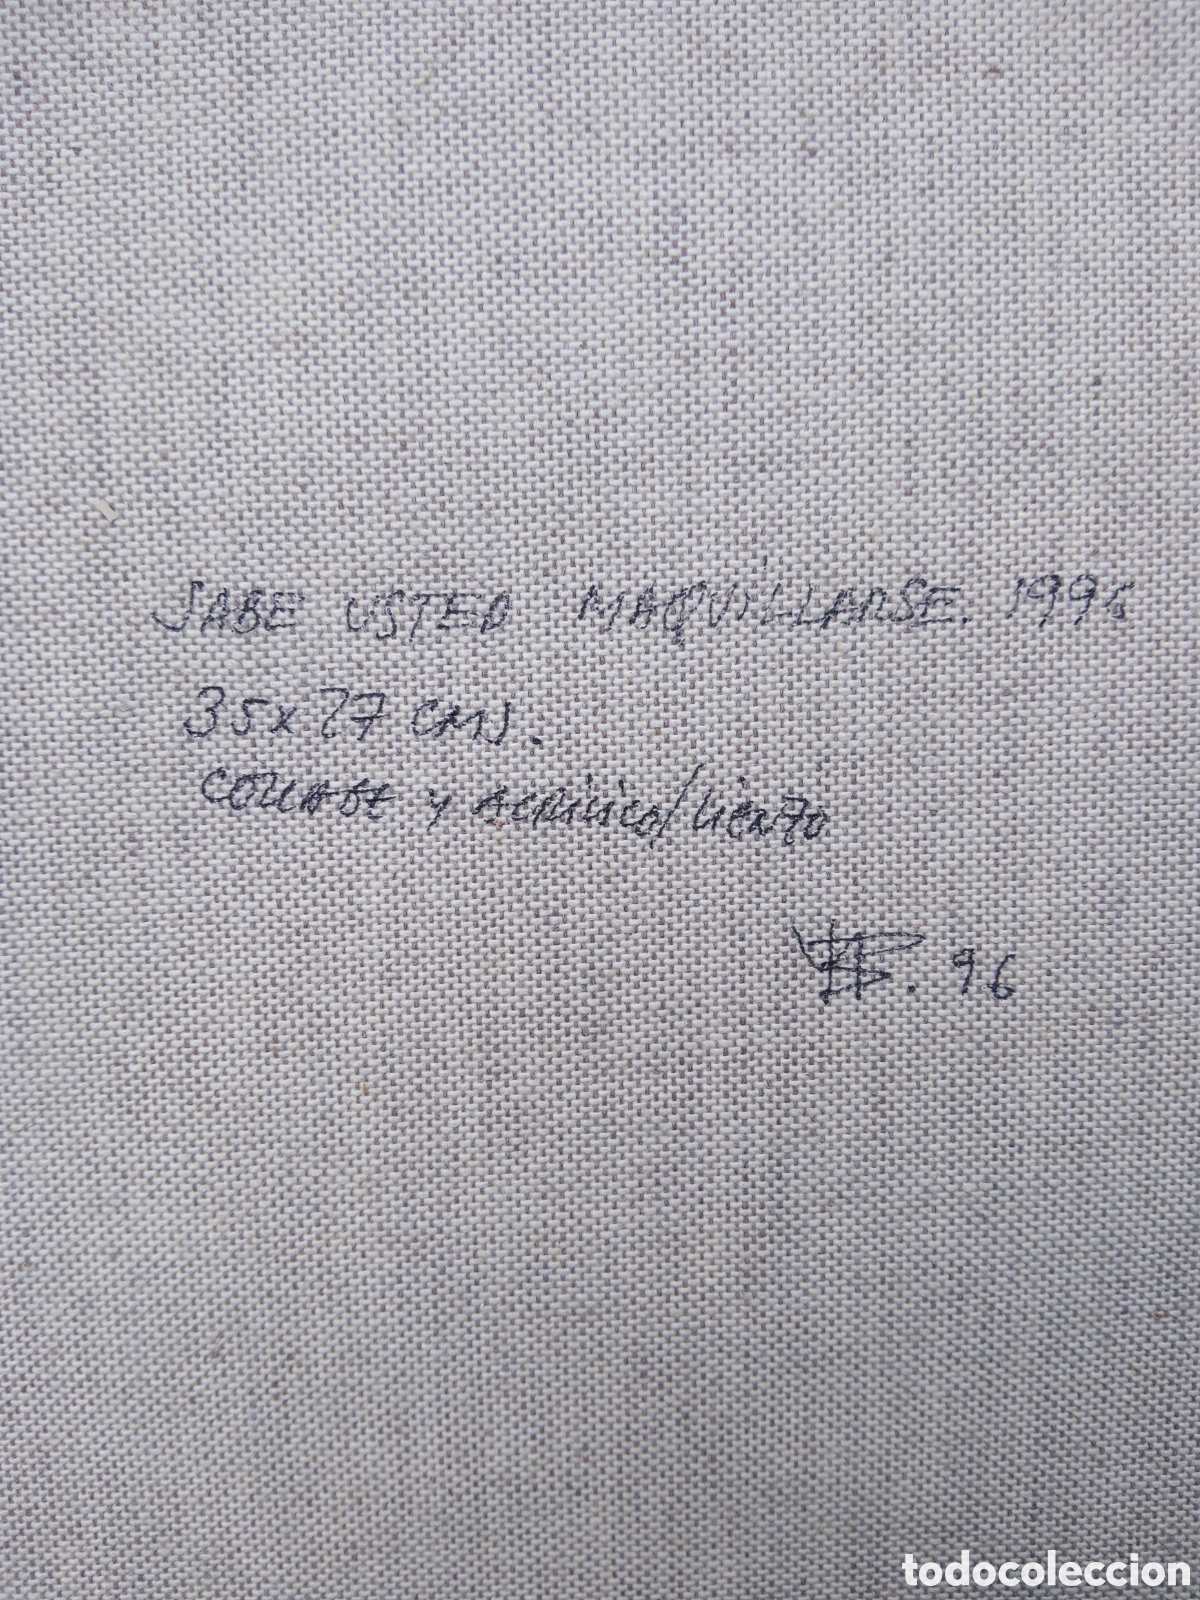 SABE USTED MAQUILLARSE. 1996
35x27 CMS.
COLLAGE y ACRÍLICO/LIENZO
. 96
todocoleccion